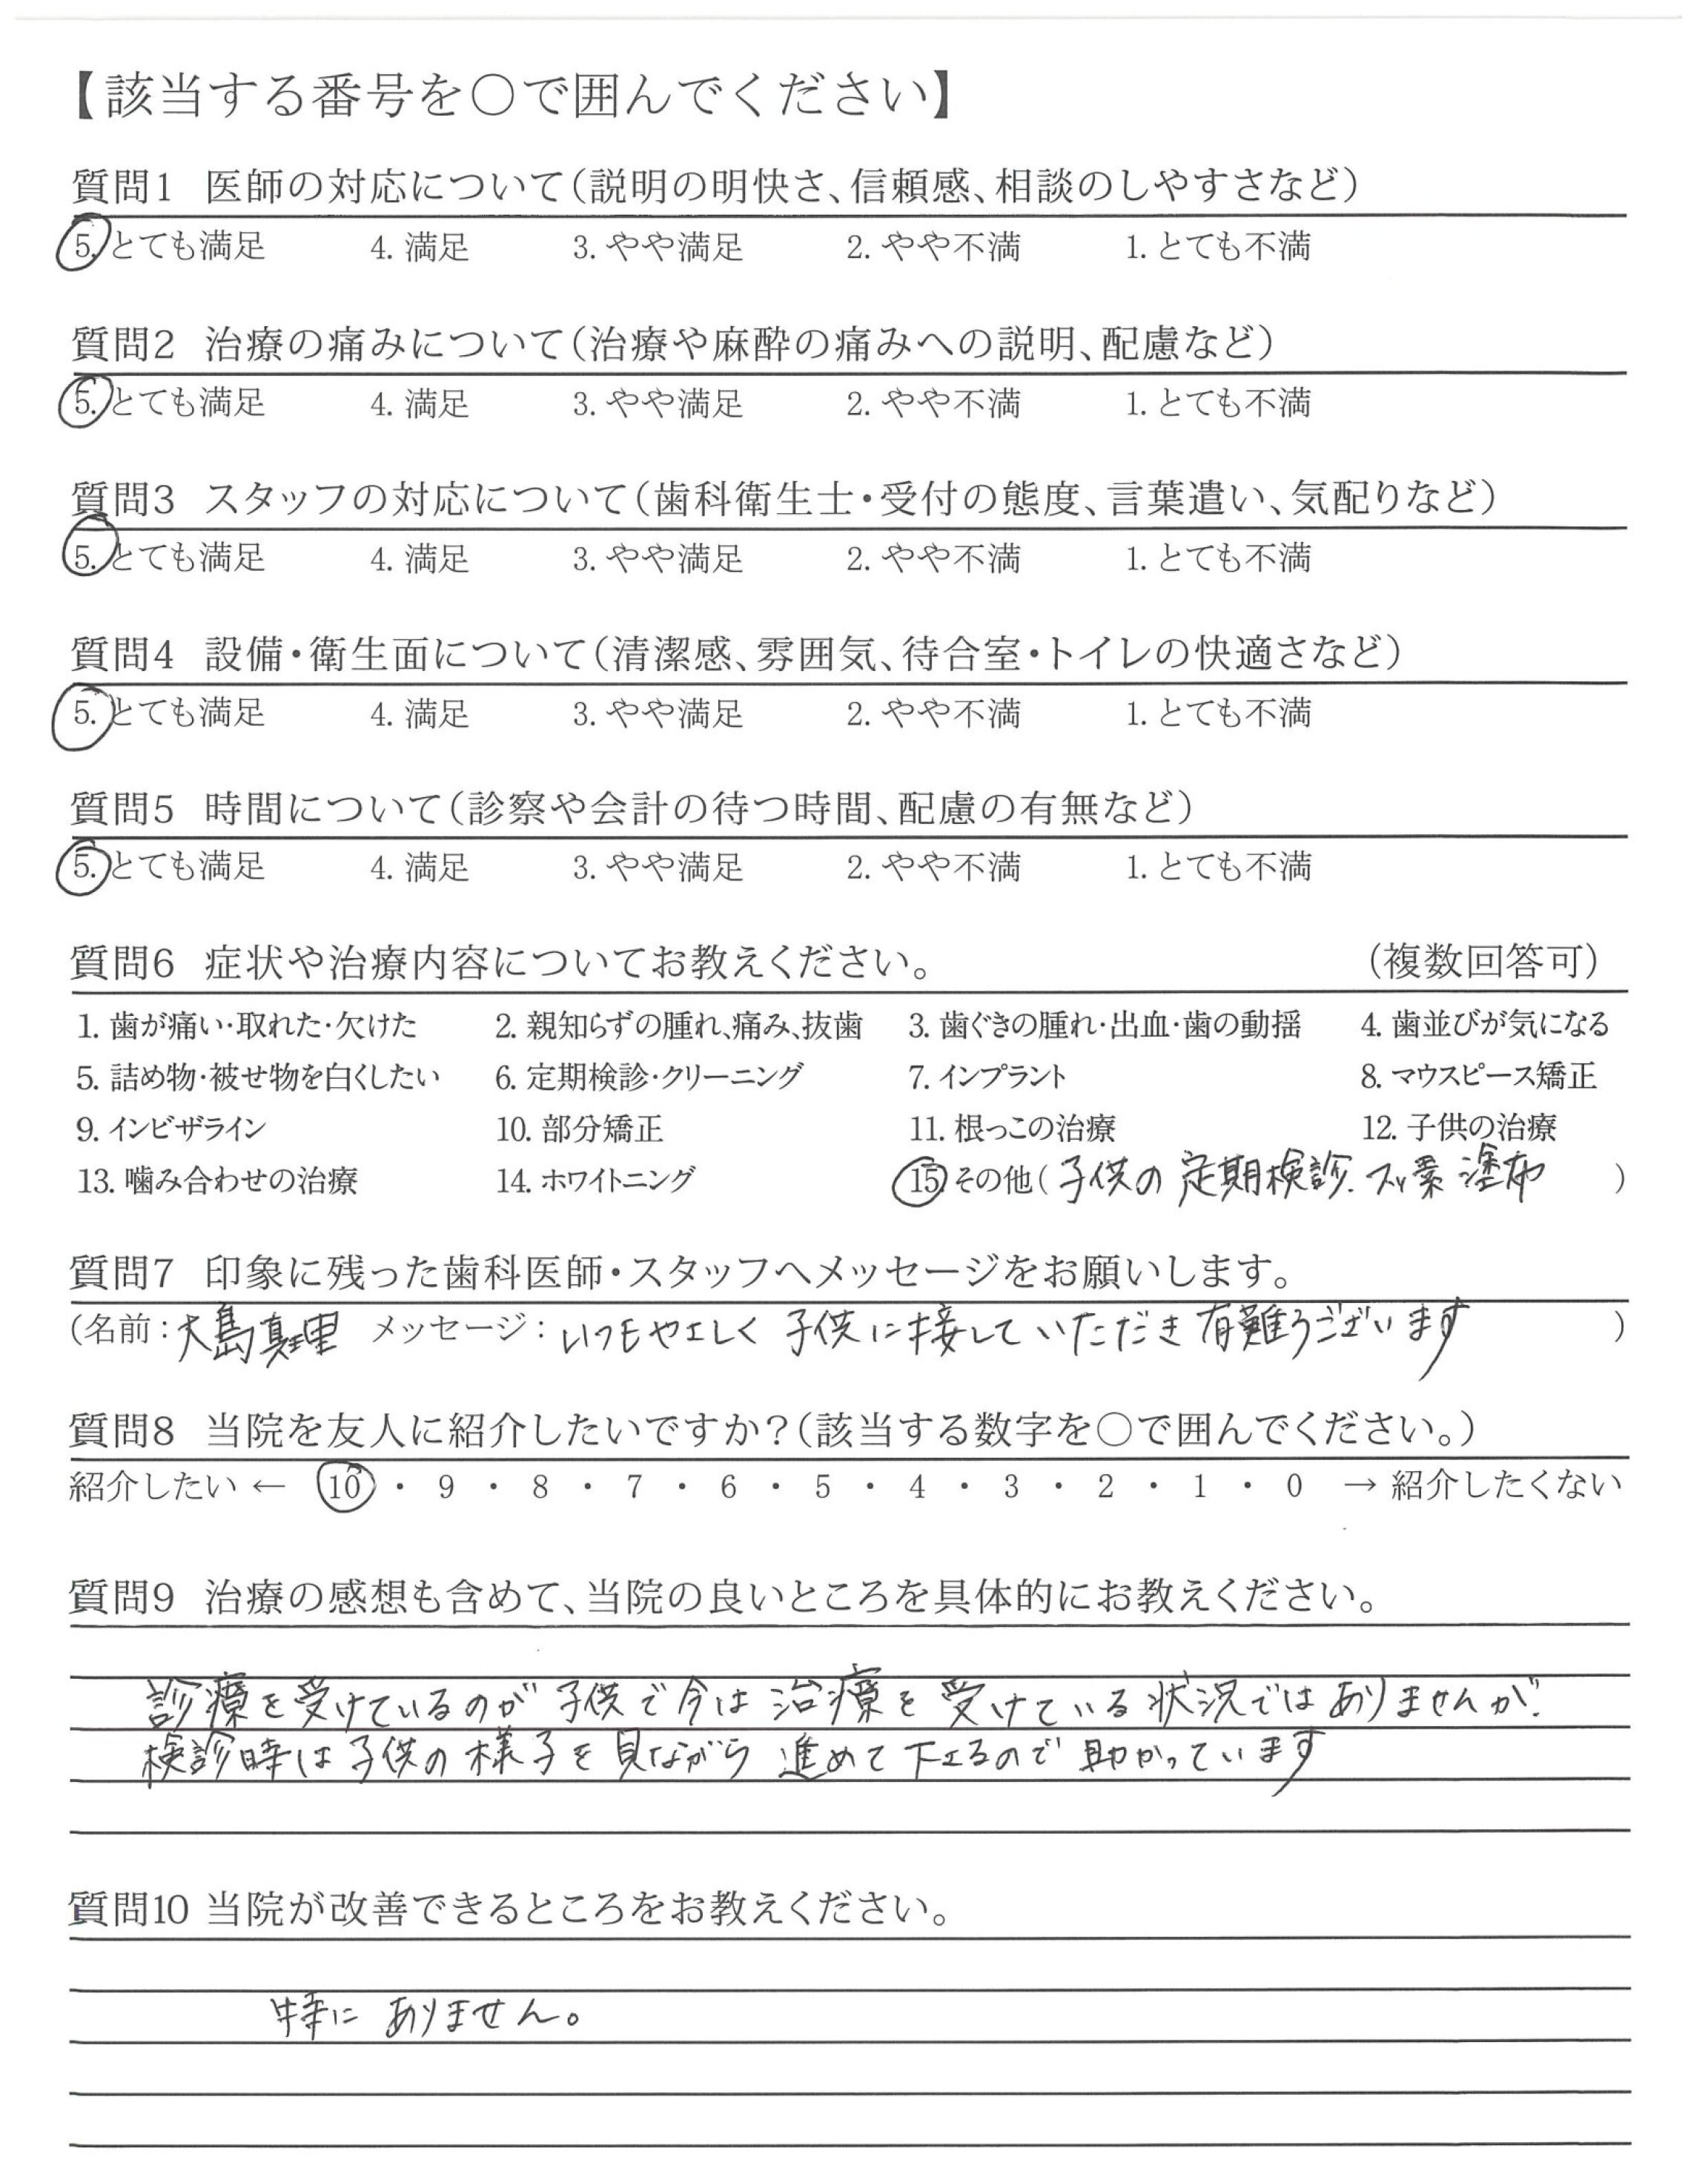 【該当する番号を〇で囲んでください】
質問1 医師の対応について(説明の明快さ、信頼感、相談のしやすさなど)
5. とても満足 4. 満足 3. やや満足 2. やや不満 1. とても不満
質問2 治療の痛みについて(治療や麻酔の痛みへの説明、配慮など)
5. とても満足 4. 満足 3. やや満足 2. やや不満 1. とても不満
質問3 スタッフの対応について(歯科衛生士・受付の態度、言葉遣い、気配りなど)
5. とても満足 4. 満足 3. やや満足 2. やや不満 1. とても不満
質問4 設備・衛生面について(清潔感、雰囲気、待合室・トイレの快適さなど)
5. とても満足 4. 満足 3. やや満足 2. やや不満 1. とても不満
質問5 時間について(診察や会計の待つ時間、配慮の有無など)
5. とても満足 4. 満足 3. やや満足 2. やや不満 1. とても不満
質問6 症状や治療内容についてお教えください。 (複数回答可)
1. 歯が痛い・取れた・欠けた 2. 親知らずの腫れ、痛み、抜歯 3. 歯ぐきの腫れ・出血・歯の動揺 4. 歯並びが気になる
5. 詰め物・被せ物を白くしたい 6. 定期検診・クリーニング 7. インプラント 8. マウスピース矯正
9. インビザライン 10. 部分矯正 11. 根っこの治療 12. 子供の治療
13. 噛み合わせの治療 14. ホワイトニング 15. その他(子供の定期検診.フッ素塗布)
質問7 印象に残った歯科医師・スタッフへメッセージをお願いします。
(名前:大島真理 メッセージ:いつもやさしく子供に接していただき有難うございます)
質問8 当院を友人に紹介したいですか?(該当する数字を〇で囲んでください。)
紹介したい ← 10 ・ 9 ・ 8 ・ 7 ・ 6 ・ 5 ・ 4 ・ 3 ・ 2 ・ 1 ・ 0 → 紹介したくない
質問9 治療の感想も含めて、当院の良いところを具体的にお教えください。
診療を受けているのが子供で今は治療を受けている状況ではありませんが.
検診時は子供の様子を見ながら進めて下さるので助かっています
質問10 当院が改善できるところをお教えください。
特にありません。